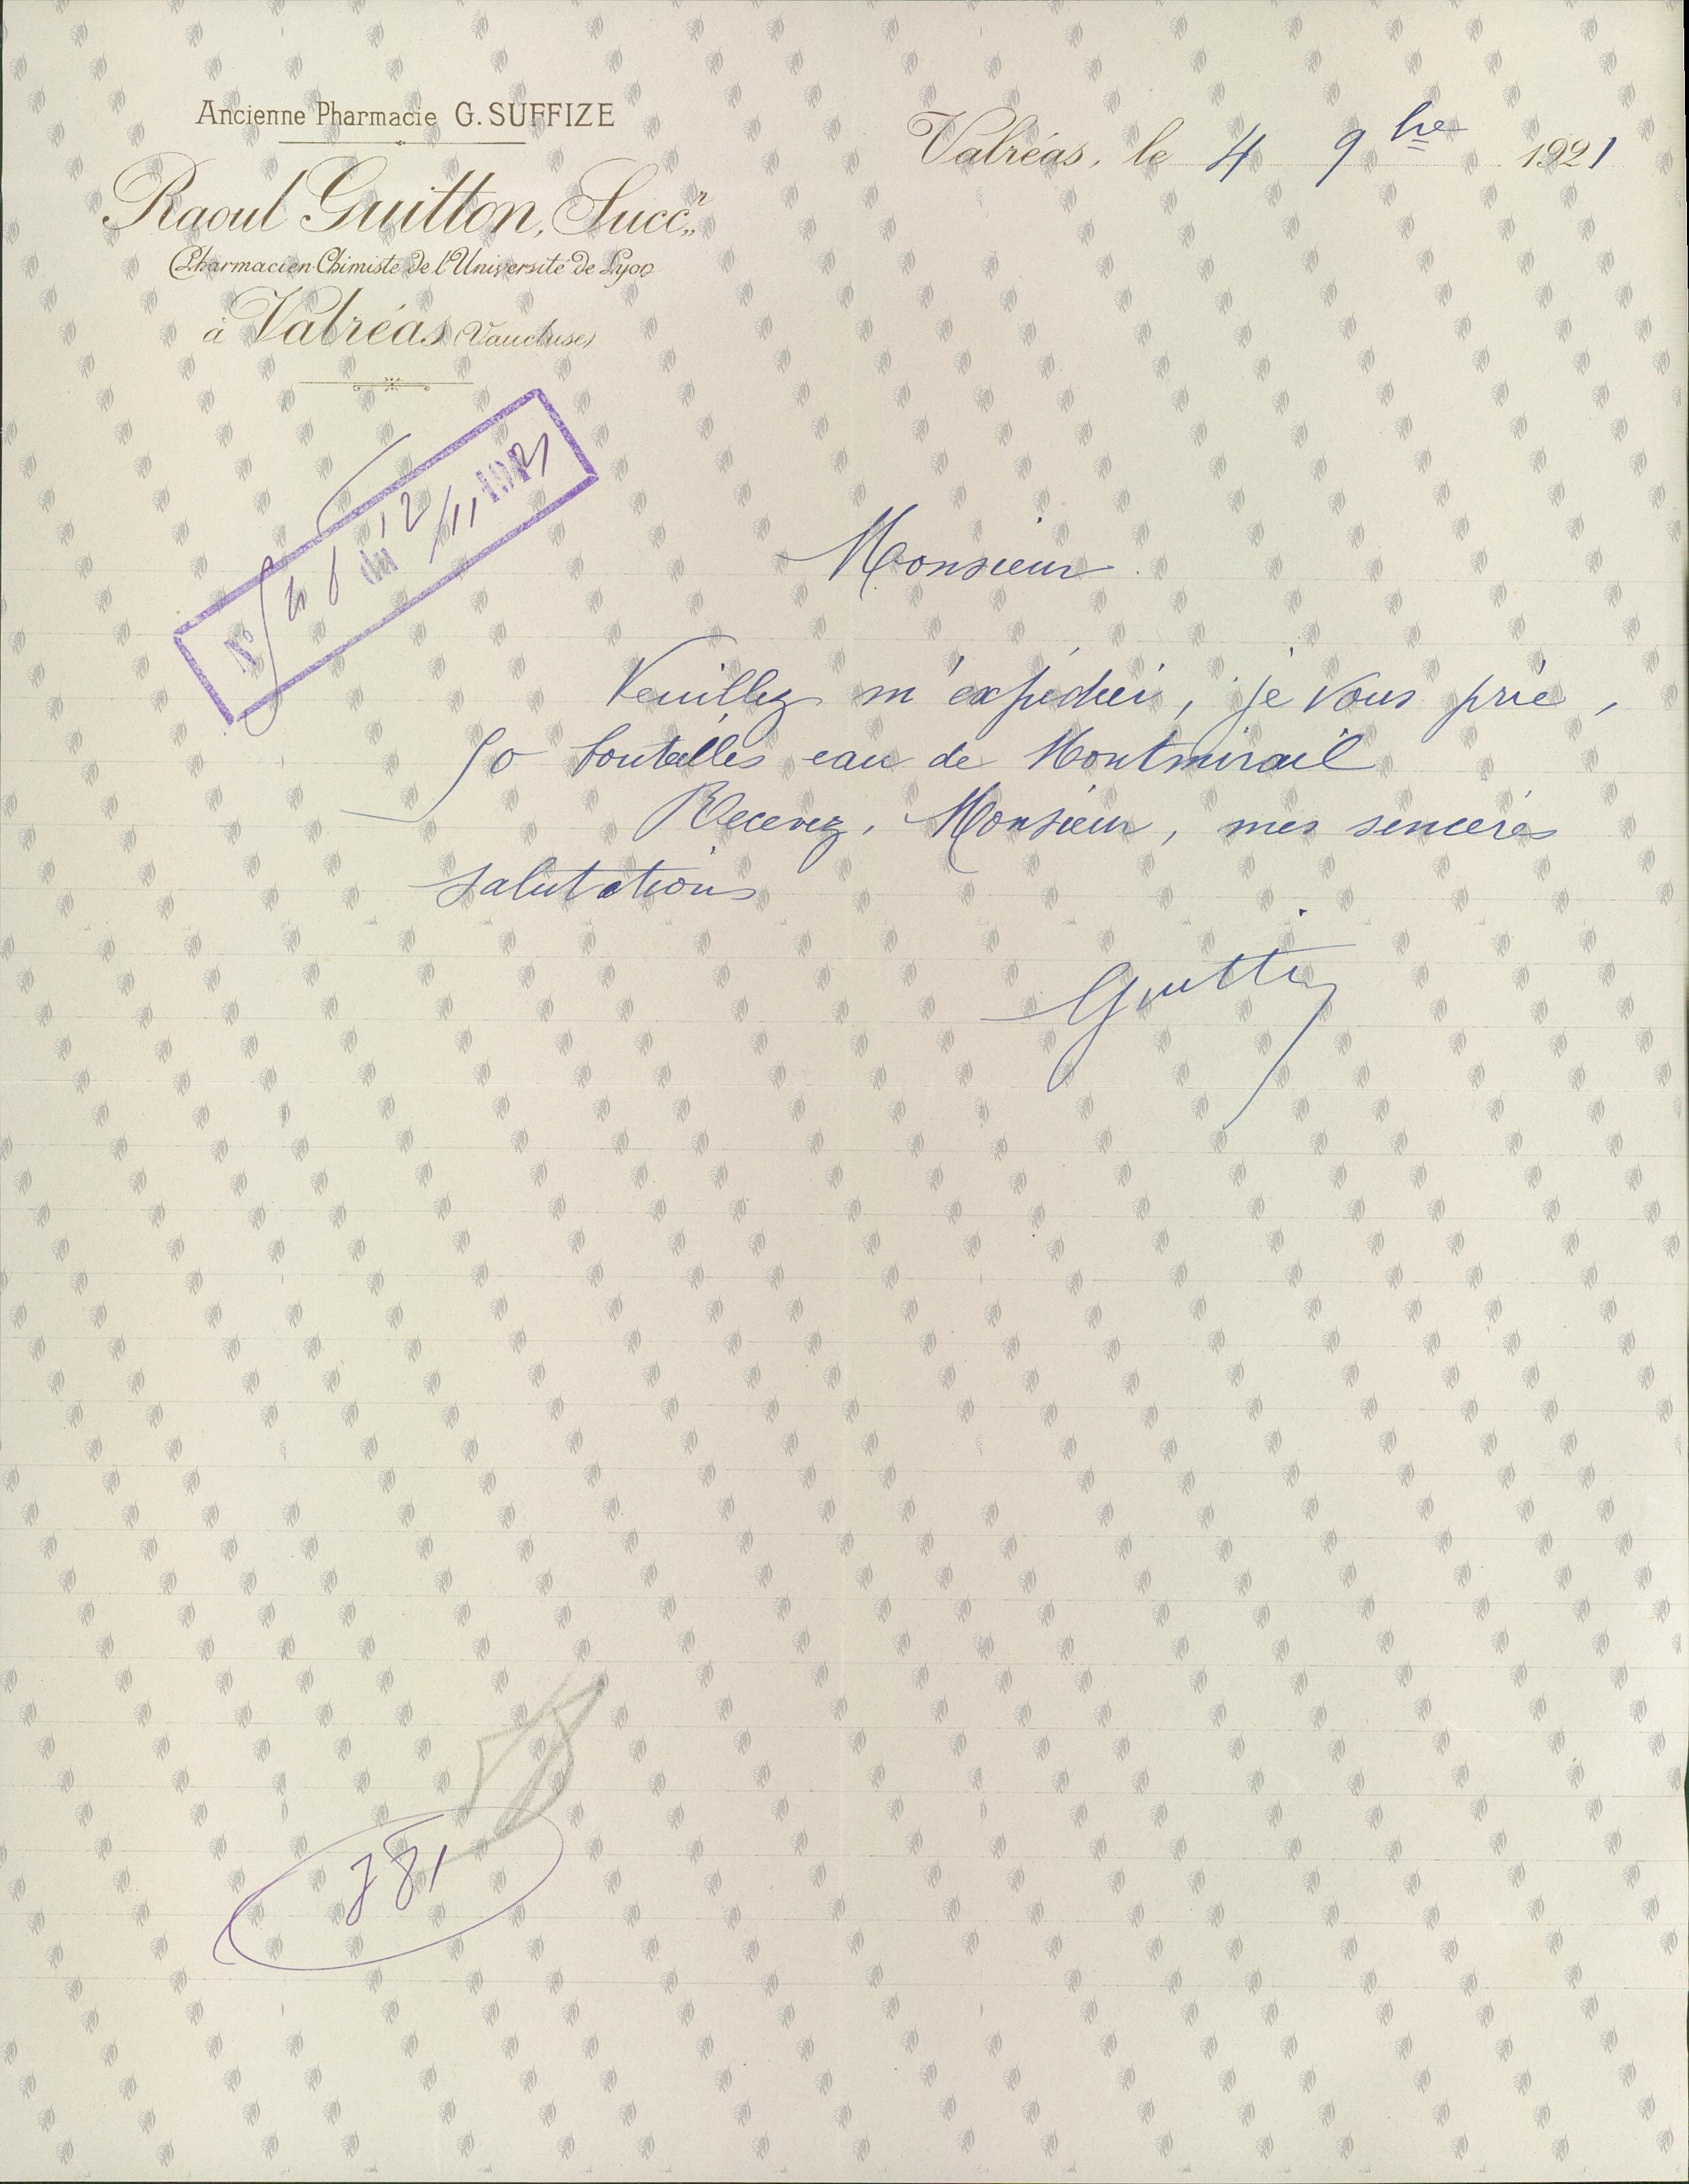 Ancienne Pharmacie G. SUFFIZE
Raoul Guitton, Succr
Pharmacien Chimiste de l'Université de Lyon
à Valréas (Vaucluse)
Valréas, le 4 9bre 1921
N° du 12/11 1921
Monsieur
Veuillez m'expédier, je vous prie,
50 bouteilles eau de Montmirail
Recevez, Monsieur, mes sincères
salutations
Guitton
781